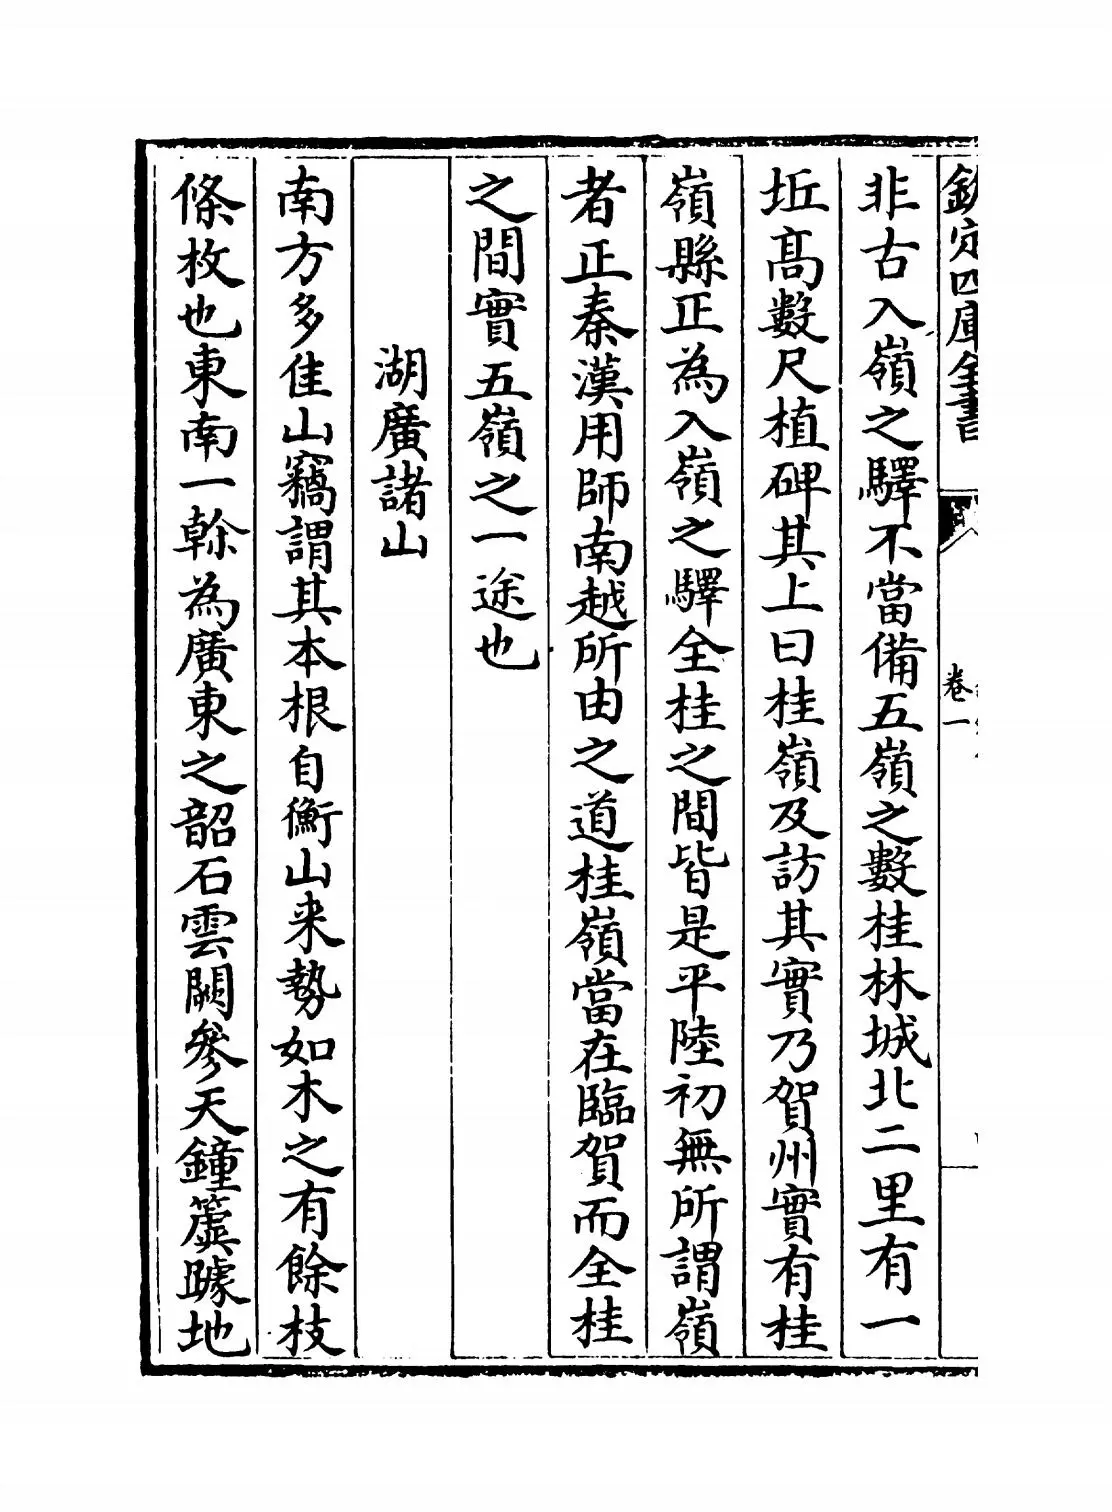 欽定四庫全書
卷一
非古入嶺之驛不當備五嶺之數桂林城北二里有一
坵髙數尺植碑其上曰桂嶺及訪其實乃賀州實有桂
嶺縣正為入嶺之驛全桂之間皆是平陸初無所謂嶺
者正秦漢用師南越所由之道桂嶺當在臨賀而全桂
之間實五嶺之一途也
湖廣諸山
南方多佳山竊謂其本根自衡山来勢如木之有餘枝
條枚也東南一榦為廣東之韶石雲闕參天鐘簴躆地